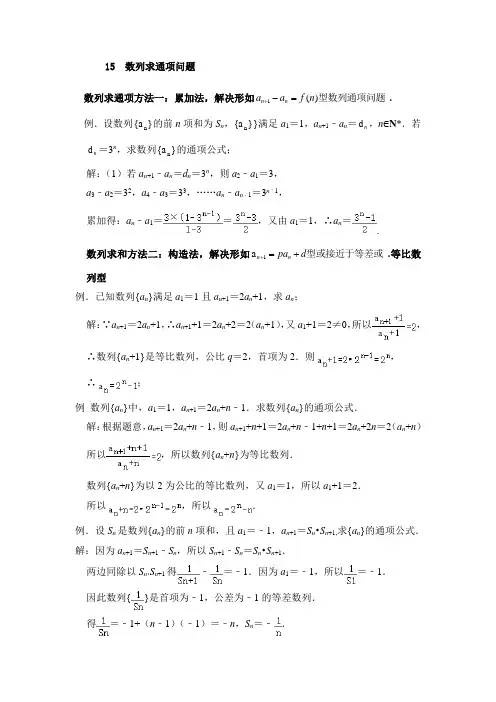 15 数列求通项问题
数列求通项方法一：累加法，解决形如aₙ₊₁−aₙ＝f(n)型数列通项问题．
例．设数列{aₙ}的前n项和为Sₙ，{aₙ}}满足a₁＝1，aₙ₊₁﹣aₙ＝dₙ，n∈N*．若
dₙ＝3ⁿ，求数列{aₙ}的通项公式；
解：（1）若aₙ₊₁﹣aₙ＝dₙ＝3ⁿ，则a₂﹣a₁＝3，
a₃﹣a₂＝3²，a₄﹣a₃＝3³，……aₙ﹣aₙ₋₁＝3ⁿ⁻¹，
累加得：aₙ﹣a₁＝3×(1-3ⁿ⁻¹)/(1-3)＝(3ⁿ-3)/2，又由a₁＝1，∴aₙ＝(3ⁿ-1)/2．
数列求和方法二：构造法，解决形如aₙ₊₁＝paₙ+d型或接近于等差或．等比数
列型
例．已知数列{aₙ}满足a₁＝1且aₙ₊₁＝2aₙ+1，求aₙ；
解：∵aₙ₊₁＝2aₙ+1，∴aₙ₊₁+1＝2aₙ+2＝2（aₙ+1），又a₁+1＝2≠0，所以(aₙ₊₁+1)/(aₙ+1)=2，
∴数列{aₙ+1}是等比数列，公比q＝2，首项为2．则aₙ+1=2•2ⁿ⁻¹=2ⁿ，
∴aₙ=2ⁿ-1；
例 数列{aₙ}中，a₁＝1，aₙ₊₁＝2aₙ+n﹣1．求数列{aₙ}的通项公式．
解：根据题意，aₙ₊₁＝2aₙ+n﹣1，则aₙ₊₁+n+1＝2aₙ+n﹣1+n+1＝2aₙ+2n＝2（aₙ+n）
所以(aₙ₊₁+n+1)/(aₙ+n)=2，所以数列{aₙ+n}为等比数列．
数列{aₙ+n}为以2为公比的等比数列，又a₁＝1，所以a₁+1＝2．
所以aₙ+n=2•2ⁿ⁻¹=2ⁿ，所以aₙ=2ⁿ-n．
例．设Sₙ是数列{aₙ}的前n项和，且a₁＝﹣1，aₙ₊₁＝Sₙ•Sₙ₊₁,求{aₙ}的通项公式．
解：因为aₙ₊₁＝Sₙ₊₁﹣Sₙ，所以Sₙ₊₁﹣Sₙ＝Sₙ•Sₙ₊₁．
两边同除以Sₙ.Sₙ₊₁得1/Sn+1﹣1/Sn＝﹣1．因为a₁＝﹣1，所以1/S1＝﹣1．
因此数列{1/Sn}是首项为﹣1，公差为﹣1的等差数列．
得1/Sn＝﹣1+（n﹣1）（﹣1）＝﹣n，Sₙ＝﹣1/n．